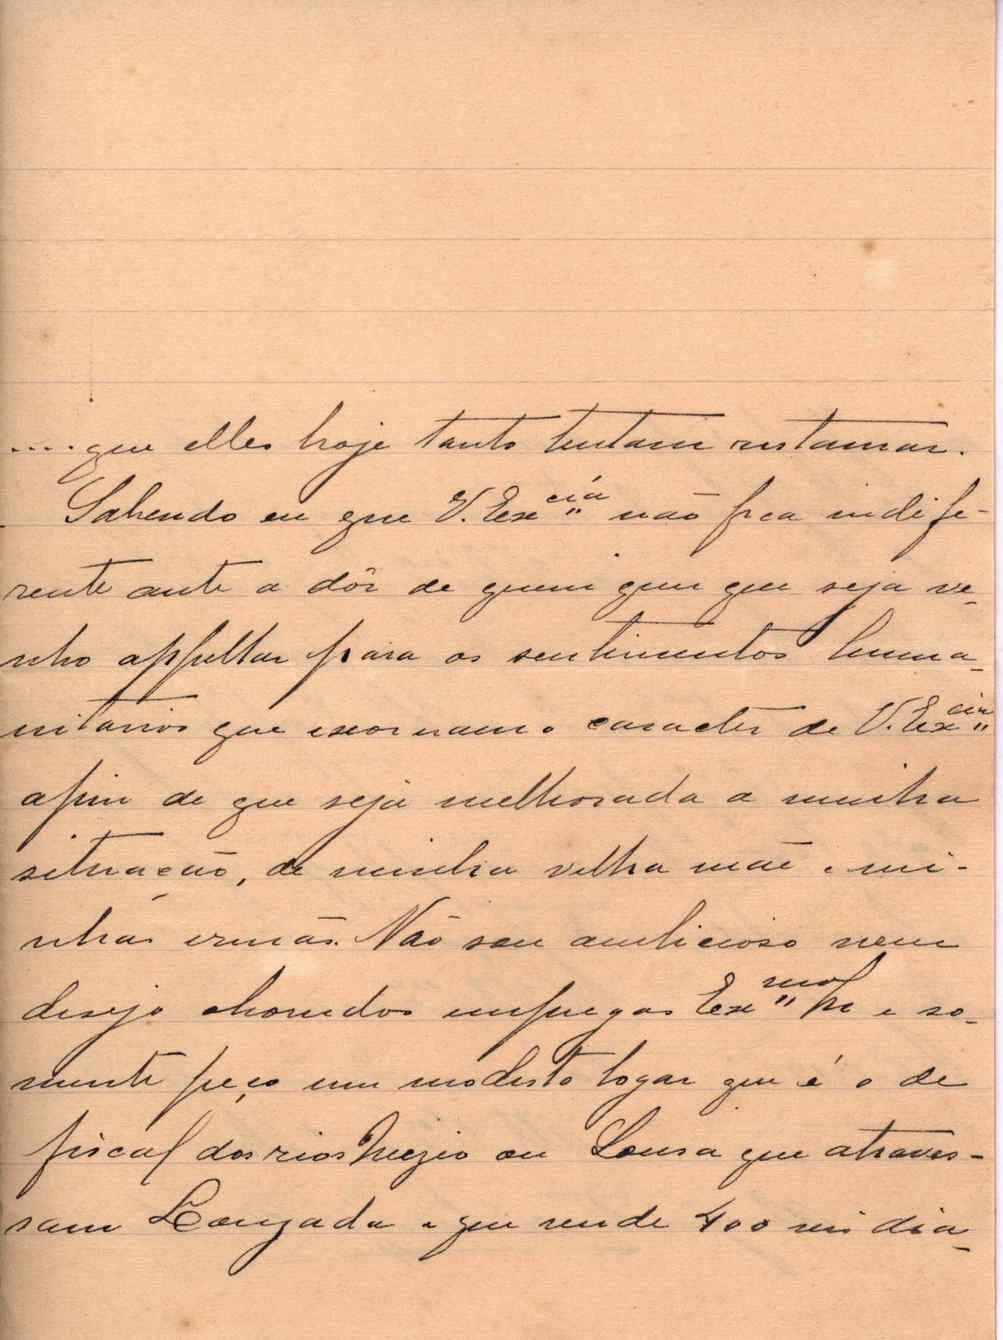 ....que elles hoje tanto tentam restaurar.
Sabendo eu que V. Ex.cia não fica indife-
rente ante a dôr de quem quer que seja ve-
nho appellar para os sentimentos huma-
nitarios que exornam o caracter de V. Ex.cia
afim de que seja melhorada a minha
situação, de minha velha mãe e mi-
nhas irmãs. Não sou ambicioso nem
desejo chorudos empregos Ex.mo Sr e so-
mente peço um modesto logar que é o de
fiscal dos rios Mezio ou Sousa que atraves-
sam Louzada e que rende 400 reis dia-